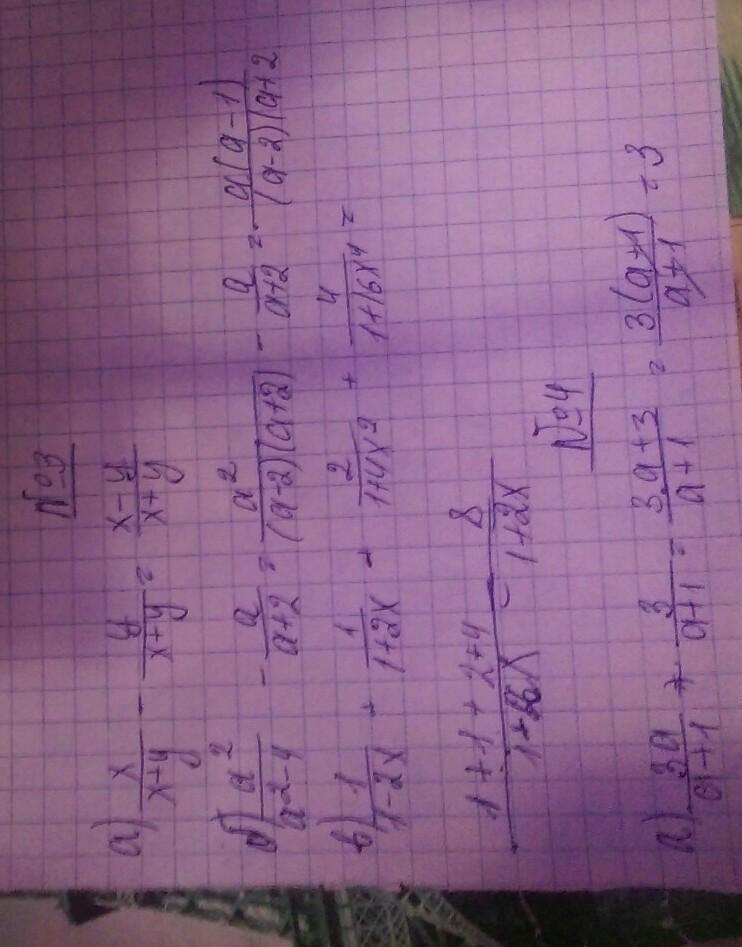 №3
а) x/(x+y) - y/(x+y) = (x-y)/(x+y)
б) a²/(a²-4) - a/(a+2) = a²/((a-2)(a+2)) - a/(a+2) = a(a-1)/((a-2)(a+2
в) 1/(1-2x) + 1/(1+2x) + 2/(1+4x²) + 4/(1+16x⁴) =
(1+1+2+4)/ 8/(1+2x)
№4
а) 3a/(a+1) + 3/(a+1) = (3a+3)/(a+1) = 3(a+1)/(a+1) = 3